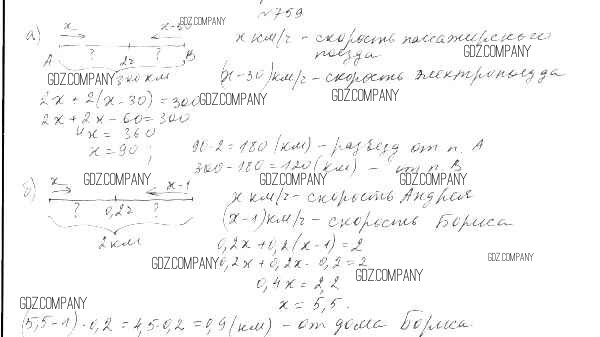 №759
GDZ.COMPANY
а) x x-30 x км/ч - скорость пассажирского
? 2ч ? поезда GDZ.COMPANY
A B
GDZ.COMPANY 300 км (x-30) км/ч - скорость электропоезда
2x + 2(x-30) = 300 GDZ.COMPANY GDZ.COMPANY
2x + 2x - 60 = 300
4x = 360 90·2 = 180 (км) - разъезд от п. A
x = 90; 300-180 = 120 (км) - от п. B
GDZ.COMPANY GDZ.COMPANY GDZ.COMPANY
б) x x-1 x км/ч - скорость Андрея
? 0,2ч ? (x-1) км/ч - скорость Бориса
2 км 0,2x + 0,2(x-1) = 2
GDZ.COMPANY 0,2x + 0,2x - 0,2 = 2 GDZ.COMPANY
0,4x = 2,2 GDZ.COMPANY
GDZ.COMPANY x = 5,5.
(5,5-1)·0,2 = 4,5·0,2 = 0,9 (км) - от дома Бориса